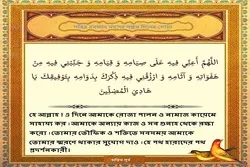 اللَّهُمَّ أَعِنِّي فِيهِ عَلَى صِيَامِهِ وَ قِيَامِهِ وَ جَنِّبْنِي فِيهِ مِنْ
هَفَوَاتِهِ وَ آثَامِهِ وَ ارْزُقْنِي فِيهِ ذِكْرَكَ بِدَوَامِهِ بِتَوْفِيقِكَ يَا
هَادِيَ الْمُضِلِّينَ
হে আল্লাহ! এ দিনে আমাকে রোজা পালন ও নামাজ কায়েমে
সাহায্য কর। আমাকে অন্যায় কাজ ও সব গুনাহ থেকে রক্ষা
করো। তোমার তৌফিক ও শক্তিতে সবসময় আমাকে
তোমার স্মরণে থাকার সুযোগ দাও। হে পথ হারাদের পথ
প্রদর্শনকারী।